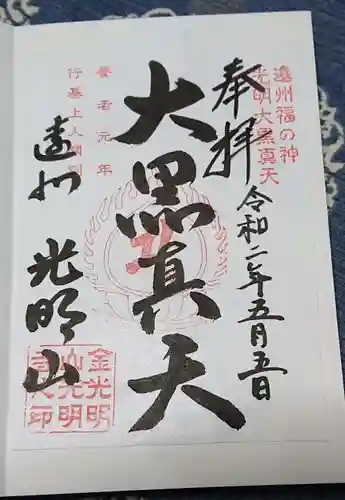 遠州福の神
光明大黒真天
奉拝
令和二年五月五日
大黒真天
養老元年
行基上人開創
遠州
光明山
金光明
山光明
寺之印